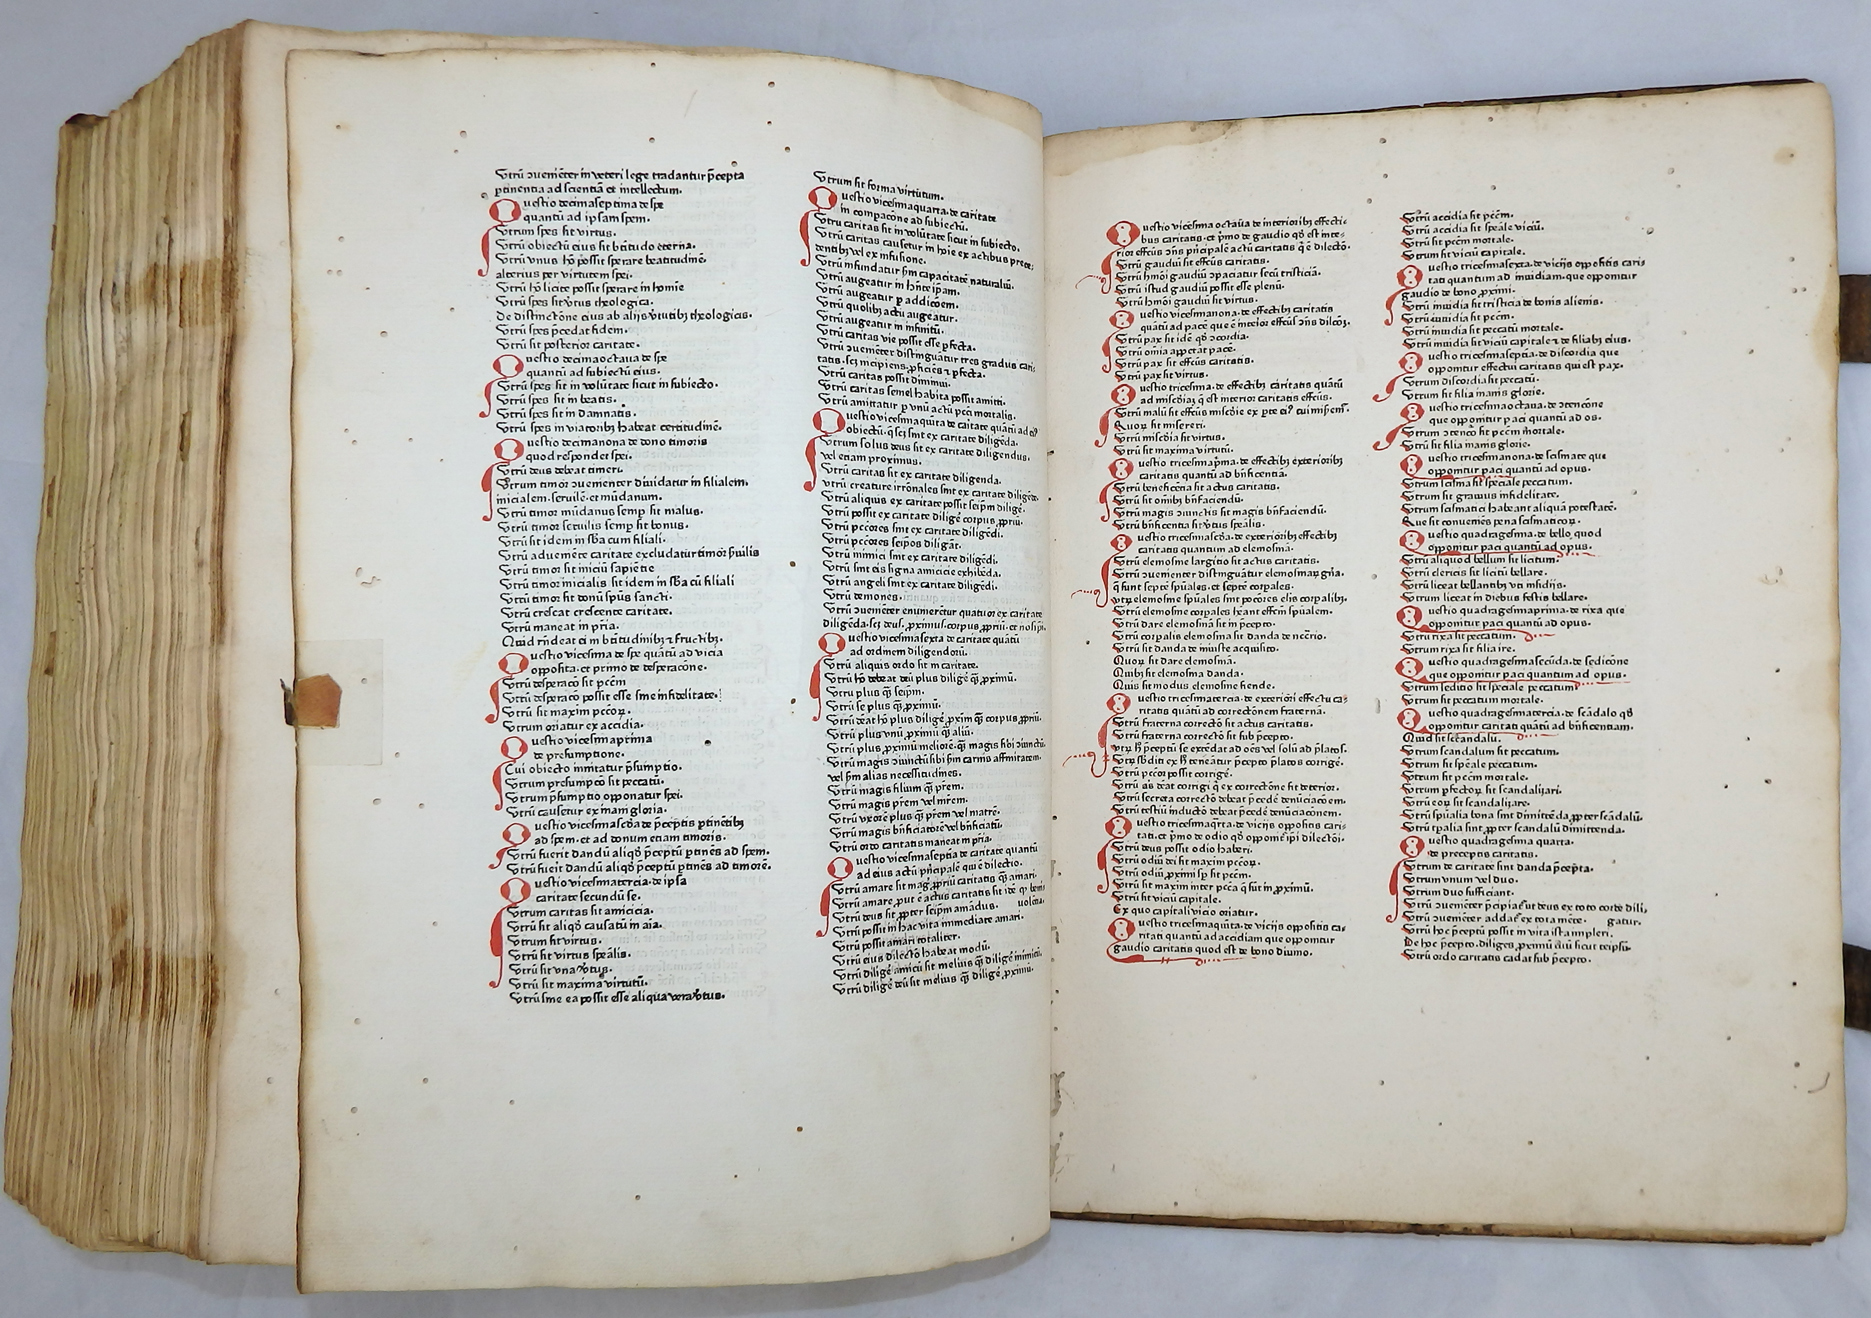 Vtrū ↄuenieter in veteri lege tradantur p̄cepta
ptinentia ad scientiā et intellectum.
Questio decimaseptima de spe
quantū ad ipsam spem.
Vtrum spes sit virtus.
Vtrū obiectū eius sit btitudo eterna.
Vtrū vnus hō possit sperare beatitudinē
alterius per virtutem spei.
Vtrū hō licite possit sperare in homie
Vtrū spes sit v̓tus theologica.
De distinctōne eius ab alijs v̓tutibꝫ theologicis.
Vtrū spes p̄cedat fidem.
Vtrū sit posterior caritate.
Questio decimaoctaua de spe
quantū ad subiectū eius.
Vtrū spes sit in volūtate sicut in subiecto.
Vtrū spes sit in beatis.
Vtrū spes sit in damnatis.
Vtrū spes in viatoribꝫ habeat certitudinē.
Questio decimanona de dono timoris
quod respondet spei.
Vtrū deus debeat timeri.
Vtrum timor ↄuenienter diuidatur in filialem.
inicialem. seruilē. et mūdanum.
Vtrū timor mūdanus semp sit malus.
Vtrū timor seruilis semp sit bonus.
Vtrū sit idem in sb̄a cum filiali.
Vtrū adueniēte caritate excludatur timor s̓uilis
Vtrū timor sit iniciū sapiētie
Vtrū timor inicialis sit idem in sb̄a cū filiali
Vtrū timor sit donū spūs sancti.
Vtrū crescat crescente caritate.
Vtrū maneat in pr̄ia.
Quid rn̄deat ei in btitudinibꝫ ⁊ fructibꝫ.
Questio vicesima de spe quātū ad vicia
opposita. et primo de desperacōne.
Vtrū desperacō sit pcc̄m
Vtrū desperacō possit esse sine infidelitate.
Vtrū sit maxim pccōꝝ.
Vtrum oriatur ex accidia.
Questio vicesimaprima
de presumptione.
Cui obiecto innitatur p̄sumptio.
Vtrum presumpcō sit peccatū.
Vtrum p̄sumptio opponatur spei.
Vtrū causetur ex inani gloria.
Questio vicesimasc̄da de p̄ceptis ptinētibꝫ
ad spem. et ad donum etiam timoris.
Vtrū fuerit dandū aliqđ p̄ceptū ptinēs ad spem.
Vtrū fuerit dandū aliqđ p̄ceptū ptinēs ad timorē.
Questio vicesimatercia. de ipsa
caritate secundū se.
Vtrum caritas sit amicicia.
Vtrū sit aliqđ causatū in aīa.
Vtrum sit virtus.
Vtrū sit virtus spēalis.
Vtrū sit vna v̓tus.
Vtrū sit maxima virtutū.
Vtrū sine ea possit esse aliqua vera v̓tus.
Vtrum sit forma virtutum.
Questio vicesimaquarta. de caritate
in compacōne ad subiectū.
Vtrū caritas sit in volūtate sicut in subiecto.
Vtrū caritas causetur in hoīe ex actibus prece
dentibꝫ vel ex infusione.
Vtrū infundatur sm̄ capacitatē naturaliū.
Vtrū augeatur in hn̄te ipam.
Vtrū augeatur p addicōem.
Vtrū quolibꝫ actu augeatur.
Vtrū augeatur in infinitū.
Vtrū caritas vie possit esse pfecta.
Vtrū ↄueniēter distinguātur tres gradus cari
tatis. scꝫ incipiens. pficiēs ⁊ pfecta.
Vtrū caritas possit diminui.
Vtrū caritas semel habita possit amitti.
Vtrū amittatur p vnū actū pcc̄i mortalis.
Questio vicesimaquinta de caitate quātū ad ei⁹
obiectū. q̄ scꝫ sint ex caritate diligēda.
Vtrum solus deus sit ex caritate diligendus.
vel etiam proximus.
Vtrū caritas sit ex caritate diligenda.
Vtrū creature irrōnales sint ex caritate diligēde.
Vtrū aliquis ex caritate possit seipm̄ diligē.
Vtrū possit ex caritate diligē corpus ꝓpriū.
Vtrū pccōres sint ex caritate diligēdi.
Vtrū pccōres seipōs diligāt.
Vtrū inimici sint ex caritate diligēdi.
Vtrū sint eis signa amicicie exhibēda.
Vtrū angeli sint ex caritate diligēdi.
Vtrū demones.
Vtrū ↄueniēter enumerētur quatuor ex caritate
diligēda. scꝫ deus. ꝓximus. corpus ꝓpriū. et nosipi.
Questio vicesimasexta de caritate quātū
ad ordinem diligendoꝝ.
Vtrū aliquis ordo sit in caritate.
Vtrū hō debeat deū plus diligē q̄ꝫ ꝓximū.
Vtrū plus q̄ꝫ seipm̄.
Vtrū se plus q̄ꝫ ꝓximū.
Vtrū deat hō plus diligē ꝓxim q̄ꝫ corpus ꝓpriū.
Vtrū plus vnū ꝓximū q̄ꝫ aliū.
Vtrū plus ꝓximū meliorē. q̄ꝫ magis sibi ↄiunctū.
Vtrū magis ↄiunctū sibi sm̄ carnis affinitatem.
vel sm̄ alias necessitudines.
Vtrū magis filium q̄ꝫ pr̄em.
Vtrū magis pr̄em vel mr̄em.
Vtrū vxorē plus q̄ꝫ pr̄em vel matrē.
Vtrū magis bn̄ficiatorē vel bn̄ficiatū.
Vtrū ordo caritatis maneat in pr̄ia.
Questio vicesimaseptīa de caritate quantū
ad eius actū pn̓cipalē qui ē dilectio.
Vtrū amare sit mag̓ ꝓpriū caritatis q̄ꝫ amari.
Vtrū amare ꝓut ē actus caritatis sit idē qꝫ beni
Vtrū deus sit ꝓpter seipm̄ amādus. uolēcia.
Vtrū possit in hac vita immediate amari.
Vtrū possit amari totaliter.
Vtrū eius dilectō habeat modū.
Vtrū diligē amicū sit melius q̄ꝫ diligē inimicū.
Vtrū diligē deū sit melius q̄ꝫ diligē ꝓximū.
Questio vicesima octaua de interioribꝫ effecti-
bus caritatis. et p̓mo de gaudio qđ est inte-
rior effcūs ↄn̄s pn̓cipalē actū caritatis q̓ ē dilectō.
Vtrū gaudiū sit effcūs caritatis.
Vtrū hmōi gaudiū ↄpaciatur secū tristiciā.
Vtrū istud gaudiū possit esse plenū.
Vtrū hmōi gaudiū sit virtus.
Questio vicesimanona. de effectibꝫ caritatis
quātū ad pacē que ē interior effcūs ↄn̄s dilcōꝫ.
Vtrū pax sit idē qđ ↄcordia.
Vtrū omia appetāt pacē.
Vtrū pax sit effcūs caritatis.
Vtrū pax sit virtus.
Questio tricesima. de effectibꝫ caritatis quātū
ad misc̄diaꝫ q̄ est interior caritatis effcūs.
Vtrū malū sit effcūs misc̄die ex pte ei⁹ cui misem̓.
Quoꝝ sit misereri.
Vtrū misc̄dia sit virtus.
Vtrū sit maxima virtutū.
Questio tricesimapr̓ma. de effectibꝫ exterioribꝫ
caritatis quantū ad bn̄ficentia.
Vtrū beneficēcia sit actus caritatis.
Vtrū sit omībꝫ bn̄faciendū.
Vtrū magis ↄiunctis sit magis bn̄faciendū.
Vtrū bn̄ficentia sit v̓tus spēalis.
Questio tricesimasc̄da. de exterioribꝫ effectibꝫ
caritatis quantum ad elemosinā.
Vtrū elemosine largitio sit actus caritatis.
Vtrū ↄuenienter distinguātur elemosinaꝝ gn̄a.
q̄ sunt septē spūales. et septē corpales.
vtꝝ elemosine spūales sint pociores elīs corpalibꝫ.
Vtrū elemosine corpales hēant effcm̄ spūalem.
Vtrū dare elemosinā sit in p̄cepto.
Vtrū corpalis elemosina sit danda de necc̄rio.
Vtrū sit danda de iniuste acquisito.
Quoꝝ sit dare elemosinā.
Quibꝫ sit elemosina danda.
Quis sit modus elemosine fiende.
Questio tricesimatercia. de exteriori effectu ca-
ritatis quātū ad correctōnem fraternā.
Vtrū fraterna correctō sit actus caritatis.
Vtrū fraterna correctō sit sub p̄cepto.
vtꝝ h̄ p̄ceptū se extēdat ad oēs vel solū ad p̄latos.
Vtrū sb̓diti ex h̄ teneātur p̄cepto p̄latos corrigē.
Vtrū pccōr possit corrigē.
Vtrū aliq̓s deat corrigi q̓ ex correctōne fit deterior.
Vtrū secreta correctō debeat p̄cedē denūciacōem.
Vtrū testiū inductō debeat p̄cedē denūciacōnem.
Questio tricesimaqr̓ta. de vicijs oppositis cari-
tati. et p̓mo de odio qđ oppon̓ ip̄i dilectōi.
Vtrū deus possit odio haberi.
Vtrū odiū dei sit maxim pccōꝝ.
Vtrū odiū ꝓximi sp̄ sit pcc̄m.
Vtrū sit maxim inter pcc̄a q̄ sūt in ꝓximū.
Vtrū sit viciū capitale.
Ex quo capitali vicio oriatur.
Questio tricesimaquīta. de vicijs oppositis ca-
ritati quantū ad accidiam que opponitur
gaudio caritatis quod est de bono diuino.
Vtrū accidia sit pcc̄m.
Vtrū accidia sit spēale viciū.
Vtrū sit pcc̄m mortale.
Vtrum sit viciū capitale.
Questio tricesimasexta. de vicijs oppositis cari
tati quantum ad inuidiam. que opponitur
gaudio de bono ꝓximi.
Vtrū inuidia sit tristicia de bonis alienis.
Vtrū inuidia sit pcc̄m.
Vtrū inuidia sit peccatū mortale.
Vtrū inuidia sit viciū capitale ⁊ de filiabꝫ eius.
Questio tricesimaseptīa. de discordia que
opponitur effectui caritatis qui est pax.
Vtrum discordia sit peccatū.
Vtrum sit filia inanis glorie.
Questio tricesimaoctaua. de ↄtencōne
que opponitur paci quantū ad os.
Vtrum ↄtencō sit pcc̄m mortale.
Vtrū sit filia inanis glorie.
Questio tricesimanona. de scismate que
opponitur paci quantū ad opus.
Vtrum scisma sit speciale peccatum.
Vtrum sit grauius infidelitate.
Vtrum scismatici habeant aliquā potestatē.
Que sit conueniēs pena scismaticoꝝ.
Questio quadragesima. de bello quod
opponitur paci quantū ad opus.
Vtrū aliquod bellum sit licitum.
Vtrū clericis sit licitū bellare.
Vtrū liceat bellantibꝫ vti insidijs.
Vtrum liceat in diebus festis bellare.
Questio quadragesimaprima. de rixa que
opponitur paci quantū ad opus.
Vtrū rixa sit peccatum.
Vtrum rixa sit filia ire.
Questio quadragesimasecūda. de sedicōne
que opponitur paci quantum ad opus.
Vtrum seditio sit speciale peccatum
Vtrum sit peccatum mortale.
Questio quadragesimatercia. de scādalo qđ
opponitur caritati quātū ad bn̄ficentiam.
Quid sit scandalū.
Vtrum scandalum sit peccatum.
Vtrum sit spēale peccatum.
Vtrum sit pcc̄m mortale.
Vtrum pfectoꝝ sit scandalizari.
Vtrū eoꝝ sit scandalizare.
Vtrū spūalia bona sint dimittēda ꝓpter scādalū.
Vtrū tp̄alia sint ꝓpter scandalū dimittenda.
Questio quadragesima quarta.
de preceptis caritatis.
Vtrum de caritate sint danda p̄cepta.
Vtrum vnum vel duo.
Vtrum duo sufficiant.
Vtrū ↄueniēter p̄cipiat̓ ut deus ex toto corde dili,
Vtrū ↄueniēter addat̓ ex tota mēte. gatur.
Vtrū hoc p̄ceptū possit in vita ista impleri.
De hoc p̄cepto. diliges ꝓximū tuū sicut teipsū.
Vtrū ordo caritatis cadat sub p̄cepto.